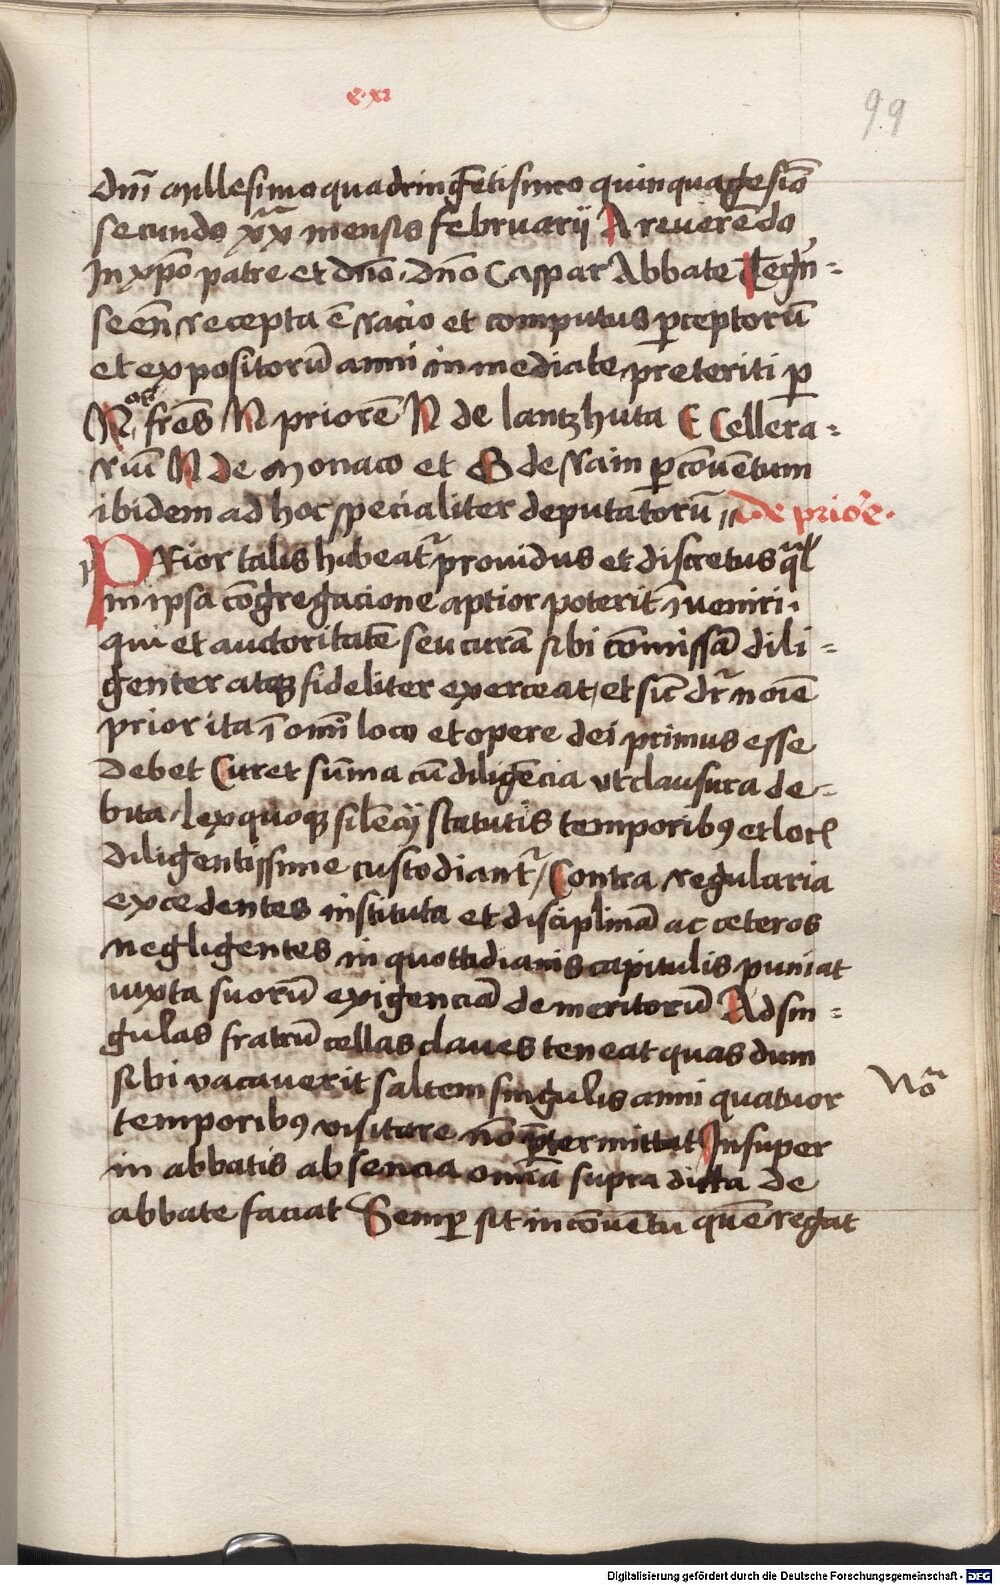 c·xi
99
dnī millesimo quadringētisimo quinquagesiō
secundo xxͣ mensis februarij A reuerēdo
In xp̄o patre et dn̄o · dn̄o Caspar Abbate Tegrͬn-
seēn recepta ē racio et computus ꝑceptorū
et expositorū anni inmediate preteriti ꝑ
N os frēs N priorē N de lantzhuta E Cellera-
riū N de Monaco et G de Rain ꝑ cōuētum
ibidem ad hoc specialiter deputatorū // De priōe·
PRior talis habeat᷑ prouidus et discretus q̄l
in ipsa cōgregacione aptior poterit īueniri·
qui et auctoritatē seu curā sibi cōmissā dili-
genter atqꝫ fideliter exerceat / et sic̄ dr̄ noīe
prior ita ī omī loco et opere dei primus esse
debet Curet sūma cū diligēcia vt clausura de-
bita / lex quoqꝫ silēcij statutis temporibꝰ et locꝭ
diligentissime custodiant᷑ / Contra regularia
excedentes instituta et disciplinā ac ceteros
negligentes in quottidianis capitulis puniat
iuxta suorū exigenciā demeritorū Ad sin-
gulas fratrū cellas claues teneat quas dum
sibi vacauerit saltem singulis anni quatuor
Nōͣ
temporibꝰ visitare nō p̄termittat Insuper
in abbatis absencia omīa supra dicta de
abbate faciat Semꝑ sit in cōuētu quē regat
Digitalisierung gefördert durch die Deutsche Forschungsgemeinschaft - DFG